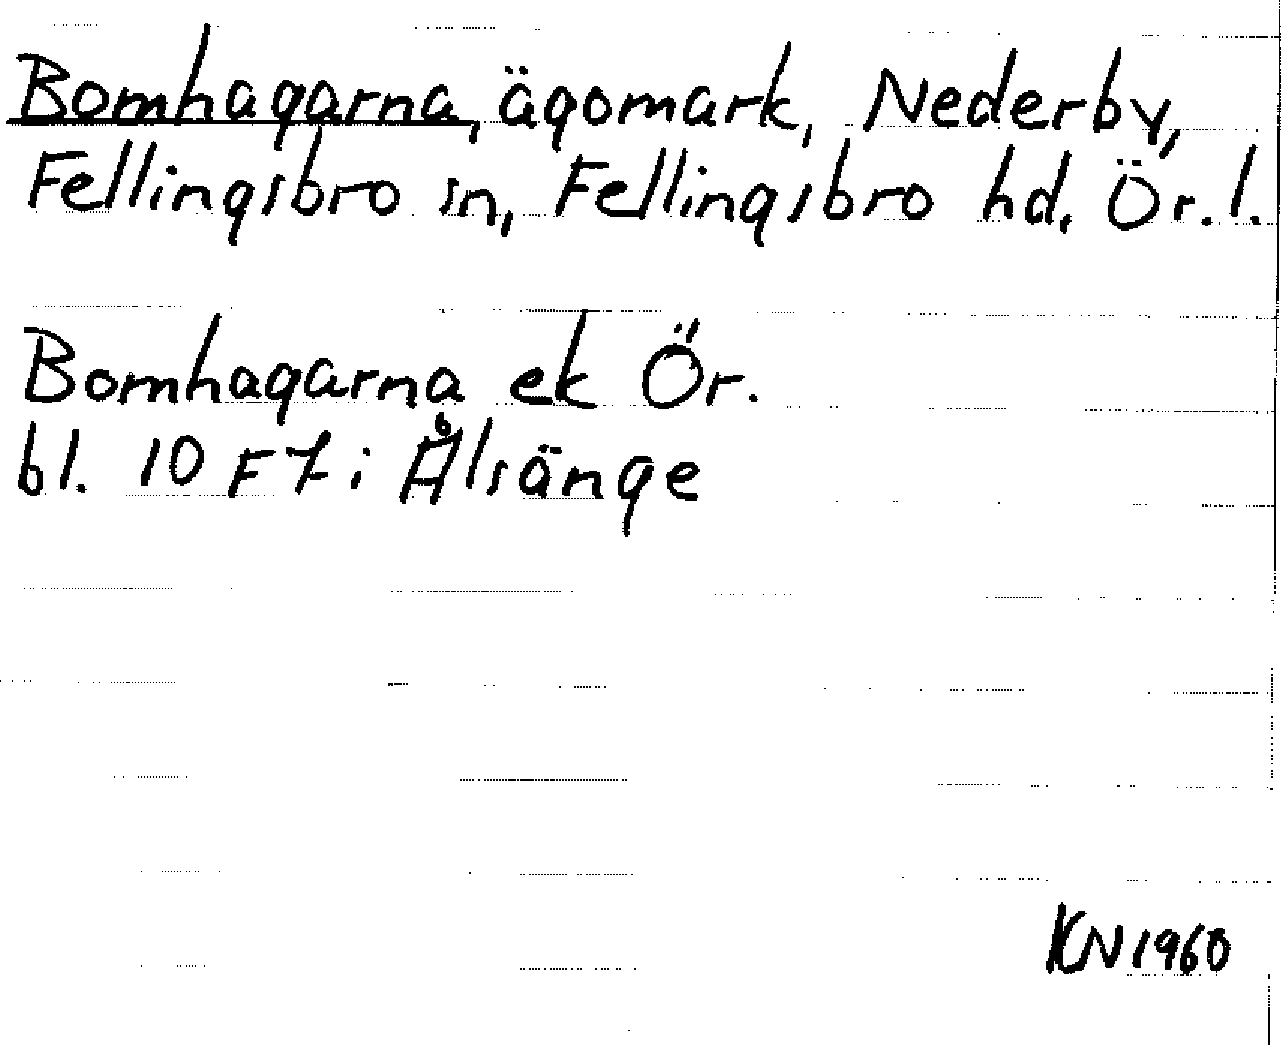 Bomhagarna, ägomark, Nederby,
Fellingsbro sn, Fellingsbro hd, Ör. l.
Bomhagarna ek Ör.
bl. 10 F 7 i Ålsänge
KN 1960